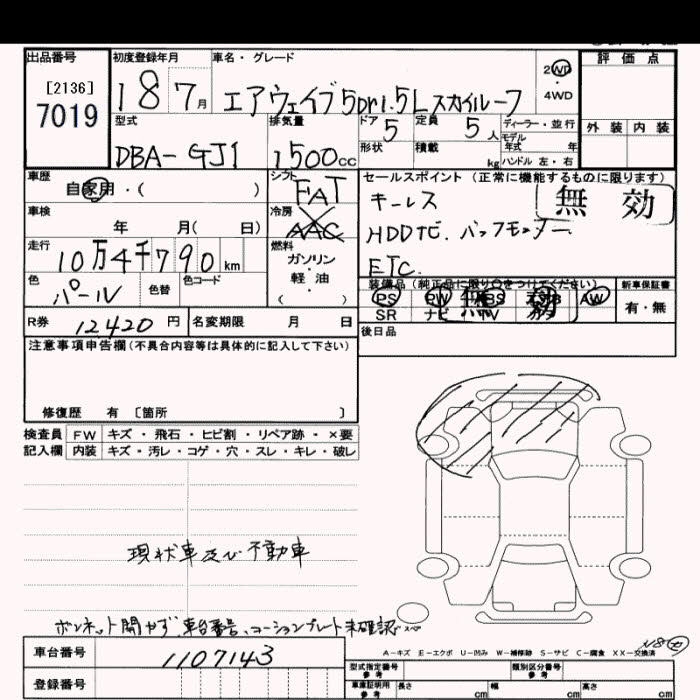 出品番号
[2136]
7019
初度登録年月
18 7月
車名・グレード
エアウェイブ 5Dr 1.5L スカイルーフ
2WD
・
4WD
評価点
外装 内装
型式
DBA-GJ1
排気量
1500cc
ドア 5
定員 5人
ディーラー・並行
モデル
年式 年
形状
積載 kg
ハンドル 左・右
車歴
自家用・( )
シフト
FAT
セールスポイント (正常に機能するものに限ります)
キーレス
無効
HDDナビ. バックモニター.
ETC.
車検
年 月( 日)
冷房
AAC
走行
10万4千790km
燃料
ガソリン
・
軽・油
・
( )
色
パール
色替
色コード
装備品 (純正品に限り○をつけてください)
新車保証書
PS PW ABS AW
無効
SR ナビ TV
有・無
R券 12420円
名変期限 月 日
後日品
注意事項申告欄(不具合内容等は具体的に記入して下さい)
修復歴 有 〔箇所 〕
検査員 FW キズ・飛石・ヒビ割・リペア跡・×要
記入欄 内装 キズ・汚レ・コゲ・穴・スレ・キレ・破レ
現状車及び不動車
ボンネット開かず、車台番号、コーションプレート未確認
スペア
A-キズ E-エクボ U-凹み W-補修跡 S-サビ C-腐食 XX-交換済
車台番号 1107143
登録番号
型式指定番号
参考
類別区分番号
参考
車庫証明用
参考
長さ cm
幅 cm
高さ cm